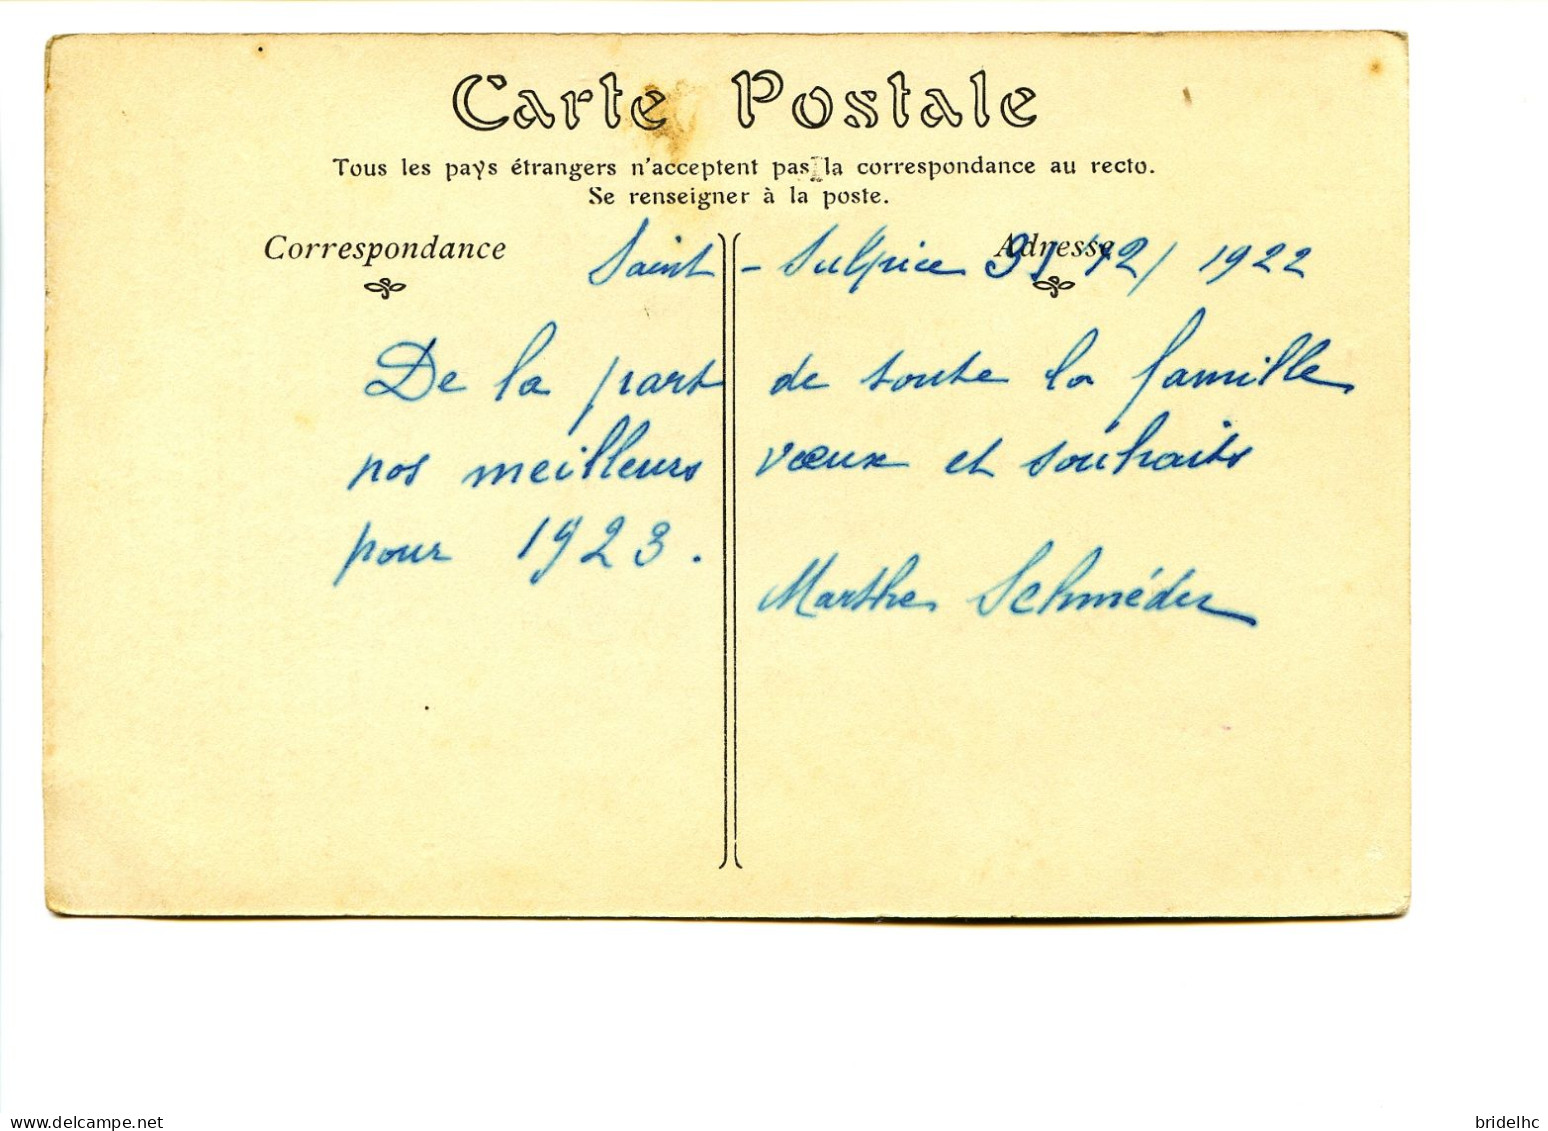 Carte Postale
Tous les pays étrangers n'acceptent pas la correspondance au recto.
Se renseigner à la poste.
Correspondance
Adresse
Saint - Sulpice 31/12/1922
De la part de toute la famille
nos meilleurs vœux et souhaits
pour 1923.
Marthe Schméder
www.delcampe.net
bridelhc